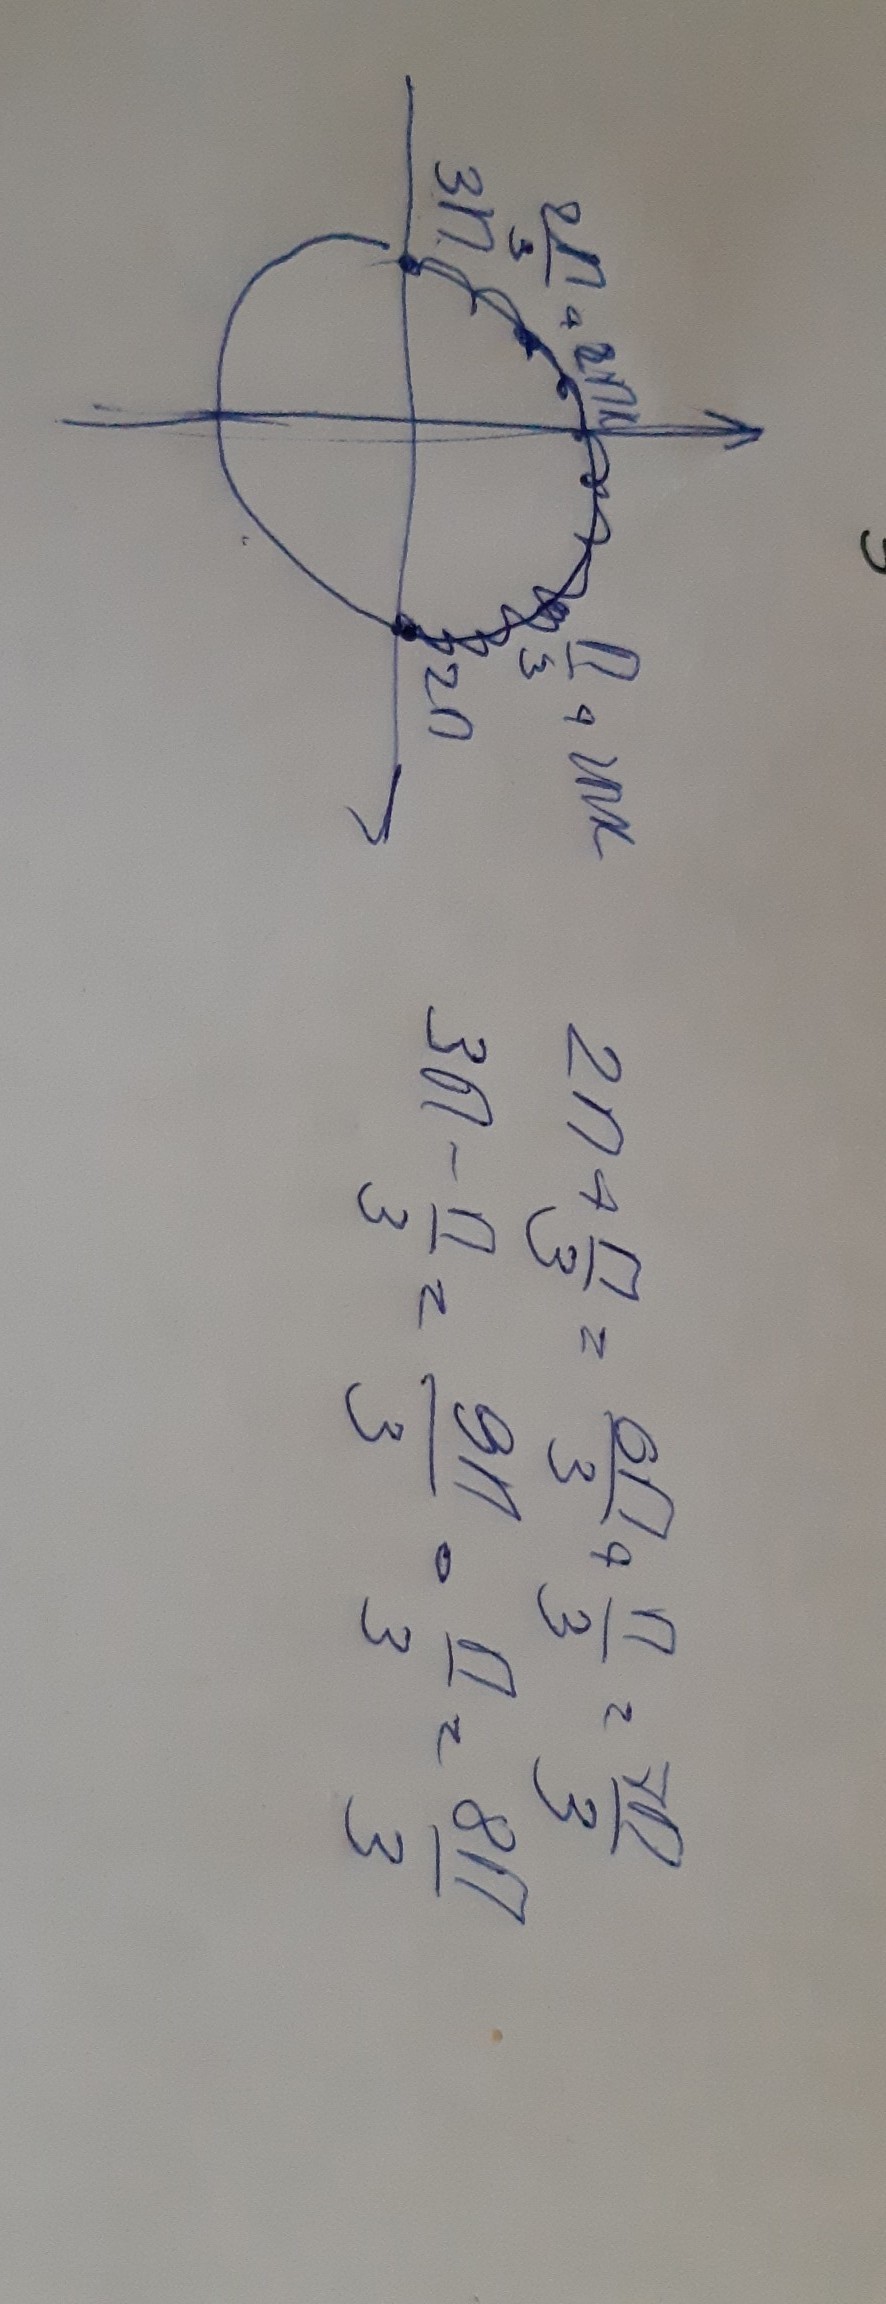 2π/3 + 2πk
π/3 + 2πk
3π
2π
2π + π/3 = 6π/3 + π/3 = 7π/3
3π - π/3 = 9π/3 - π/3 = 8π/3